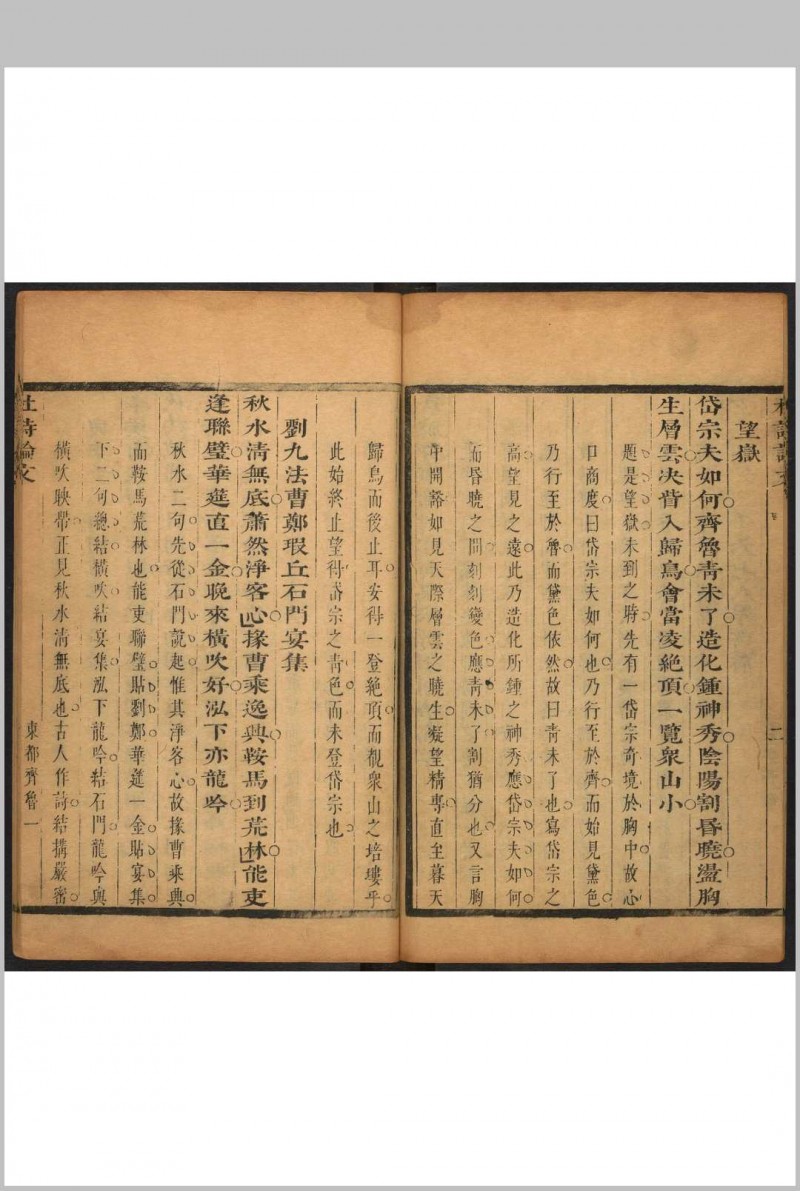 二
望嶽
岱宗夫如何齊魯青未了造化鍾神秀陰陽割昏曉盪胸
生層雲决眥入歸鳥會當凌絕頂一覽衆山小
題是望嶽未到之時先有一岱宗奇境於胸中故心
口商度曰岱宗夫如何也乃行至於齊而始見黛色
乃行至於魯而黛色依然故曰青未了也寫岱宗之
高望見之遠此乃造化所鍾之神秀應岱宗夫如何
而昏曉之間刻刻變色應青未了割猶分也又言胸
中開豁如見天際層雲之曉生凝望精專直至暮天
歸鳥而後止耳安得一登絕頂而覩衆山之培塿乎
此始終止望得岱宗之青色而未登岱宗也
劉九法曹鄭瑕丘石門宴集
秋水清無底蕭然淨客心掾曹乘逸興鞍馬到荒林能吏
逢聯璧華筵直一金晚來橫吹好泓下亦龍吟
秋水二句先從石門說起惟其淨客心故掾曹乘興
而鞍馬荒林也能吏聯璧貼劉鄭華筵一金貼宴集
下二句總結橫吹結宴集泓下龍吟結石門龍吟與
橫吹映帶正見秋水清無底也古人作詩結搆嚴密
杜詩論文
東都齊魯一